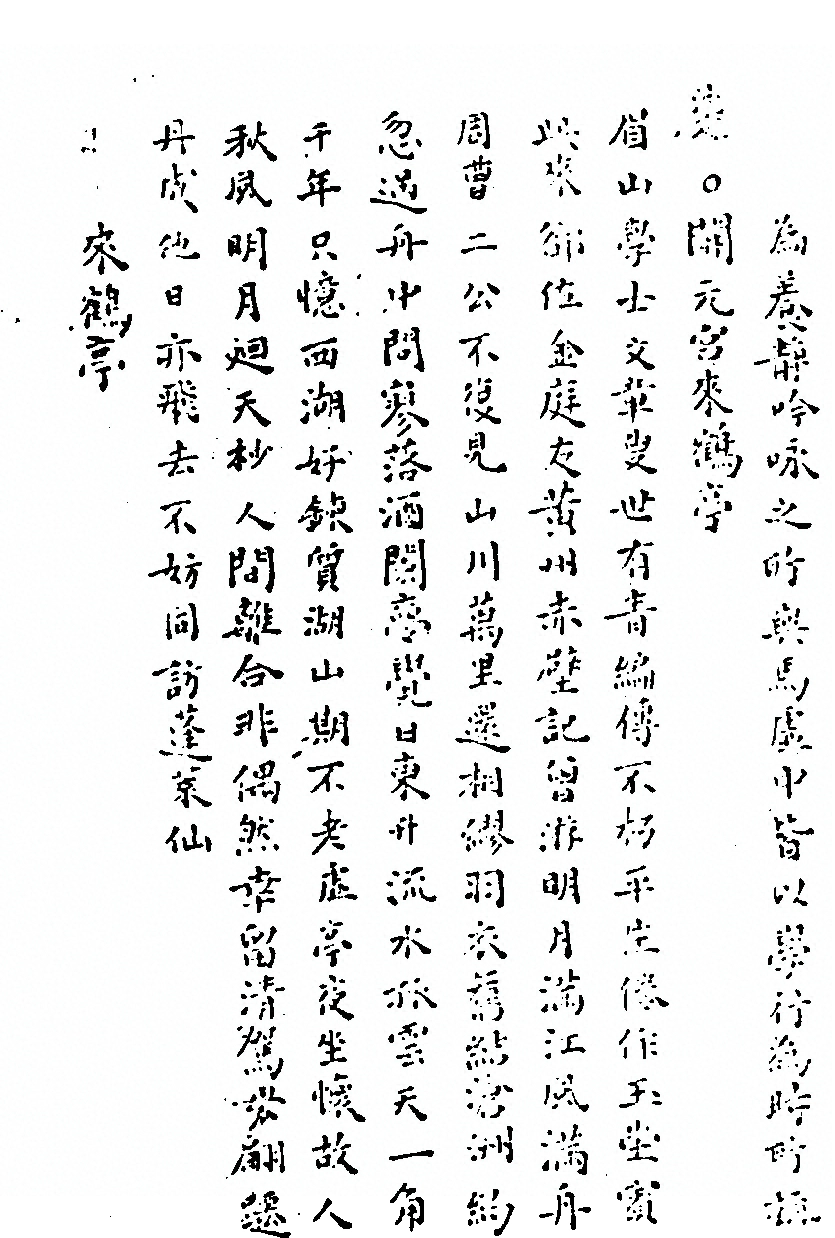 為養靜吟咏之所與馬虛中皆以學行為時所
○開元宮來鶴亭
眉山學士文章叟世有青編傳不朽平生倦作玉堂賓
興來卻佐金庭友黃州赤壁記曾游明月滿江風滿舟
周曹二公不復見山川萬里還相繆羽衣舊結滄洲約
忽過舟中問寥落酒闌夢覺日東升流水孤雲天一角
千年只憶西湖好鉄質湖山期不老虛亭夜坐懷故人
秋風明月廻天杪人間離合非偶然幸留清駕毋翩還
丹成他日亦飛去不妨同訪蓬萊仙
來鶴亭